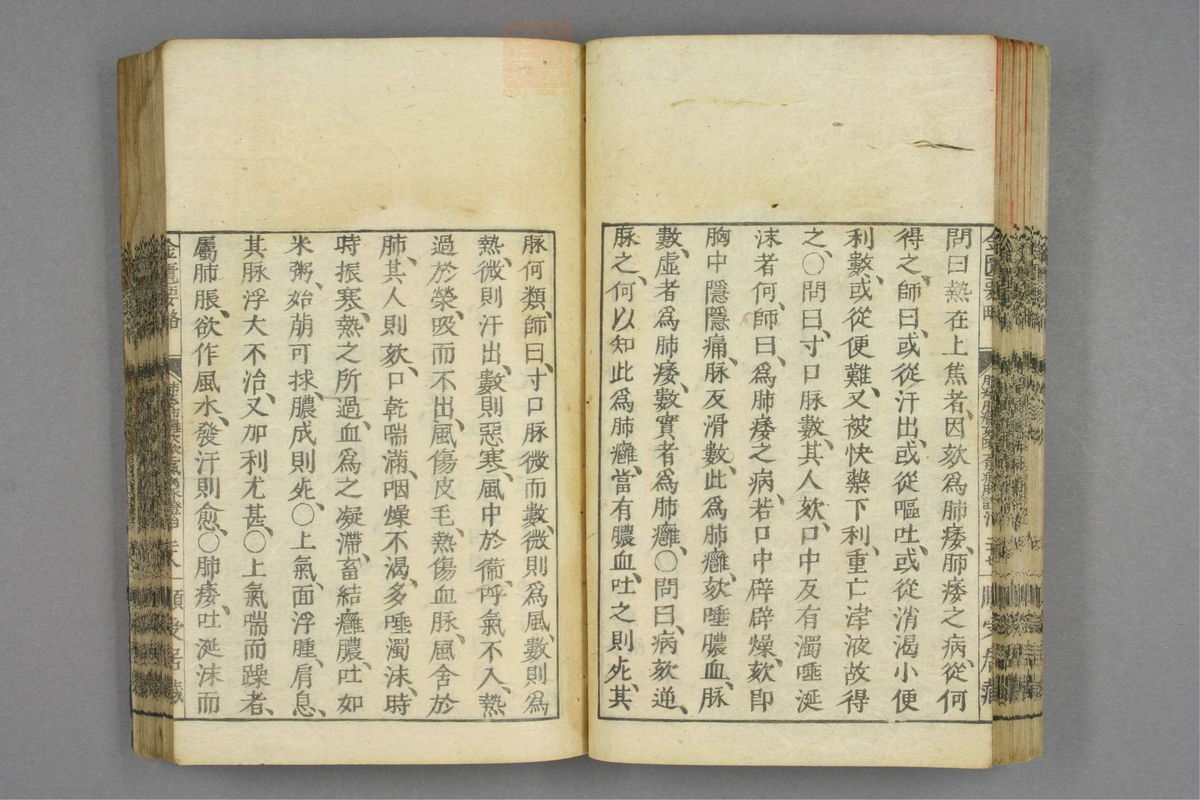 問曰、熱在上焦者、因欬爲肺痿、肺痿之病、從何
得之、師曰、或從汗出、或從嘔吐、或從消渴小便
利數、或從便難、又被快藥下利、重亡津液故得
之、〇問曰、寸口脉數、其人欬、口中反有濁唾涎
沫者何、師曰、爲肺痿之病、若口中辟辟燥、欬卽
胸中隱隱痛、脉反滑數、此爲肺癰、欬唾膿血、脉
數、虛者爲肺痿、數實者爲肺癰、〇問曰、病欬逆、
脉之、何以知此爲肺癰、當有膿血、吐之則死、其
脉何類、師曰、寸口脉微而數、微則爲風、數則爲
熱、微則汗出、數則惡寒、風中於衞、呼氣不入、熱
過於榮、吸而不出、風傷皮毛、熱傷血脉、風舍於
肺、其人則欬、口乾喘滿、咽燥不渴、多唾濁沫、時
時振寒、熱之所過、血爲之凝滯、畜結癰膿、吐如
米粥、始萠可捄、膿成則死、〇上氣、面浮腫、肩息、
其脉浮大不治、又加利尤甚、〇上氣喘而躁者、
屬肺脹、欲作風水、發汗則愈、〇肺痿、吐涎沫而
金匱要略